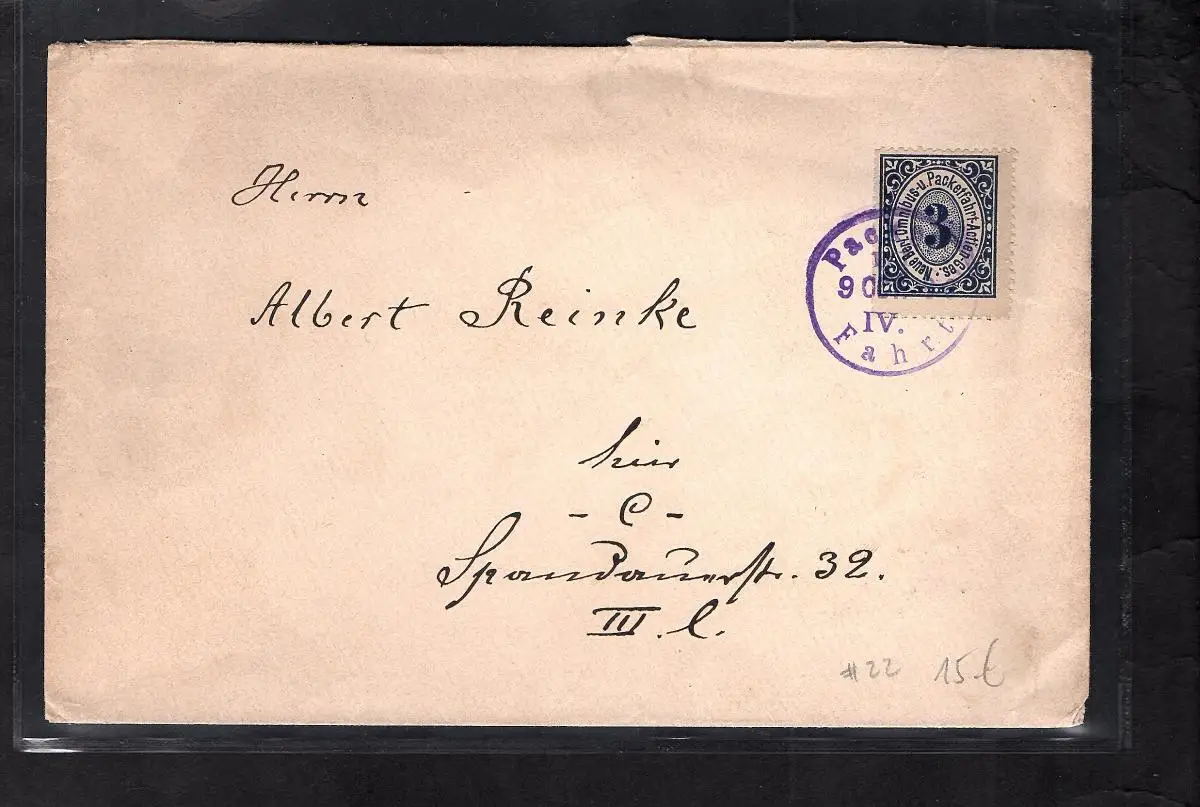 Herrn
Albert Reinke
hier
- C -
Spandauerstr. 32.
III. l.
Neue Berl. Omnibus- u. Packetfahrt-Actien-Ges.
3
9
IV.
Fahrt
#22 15€